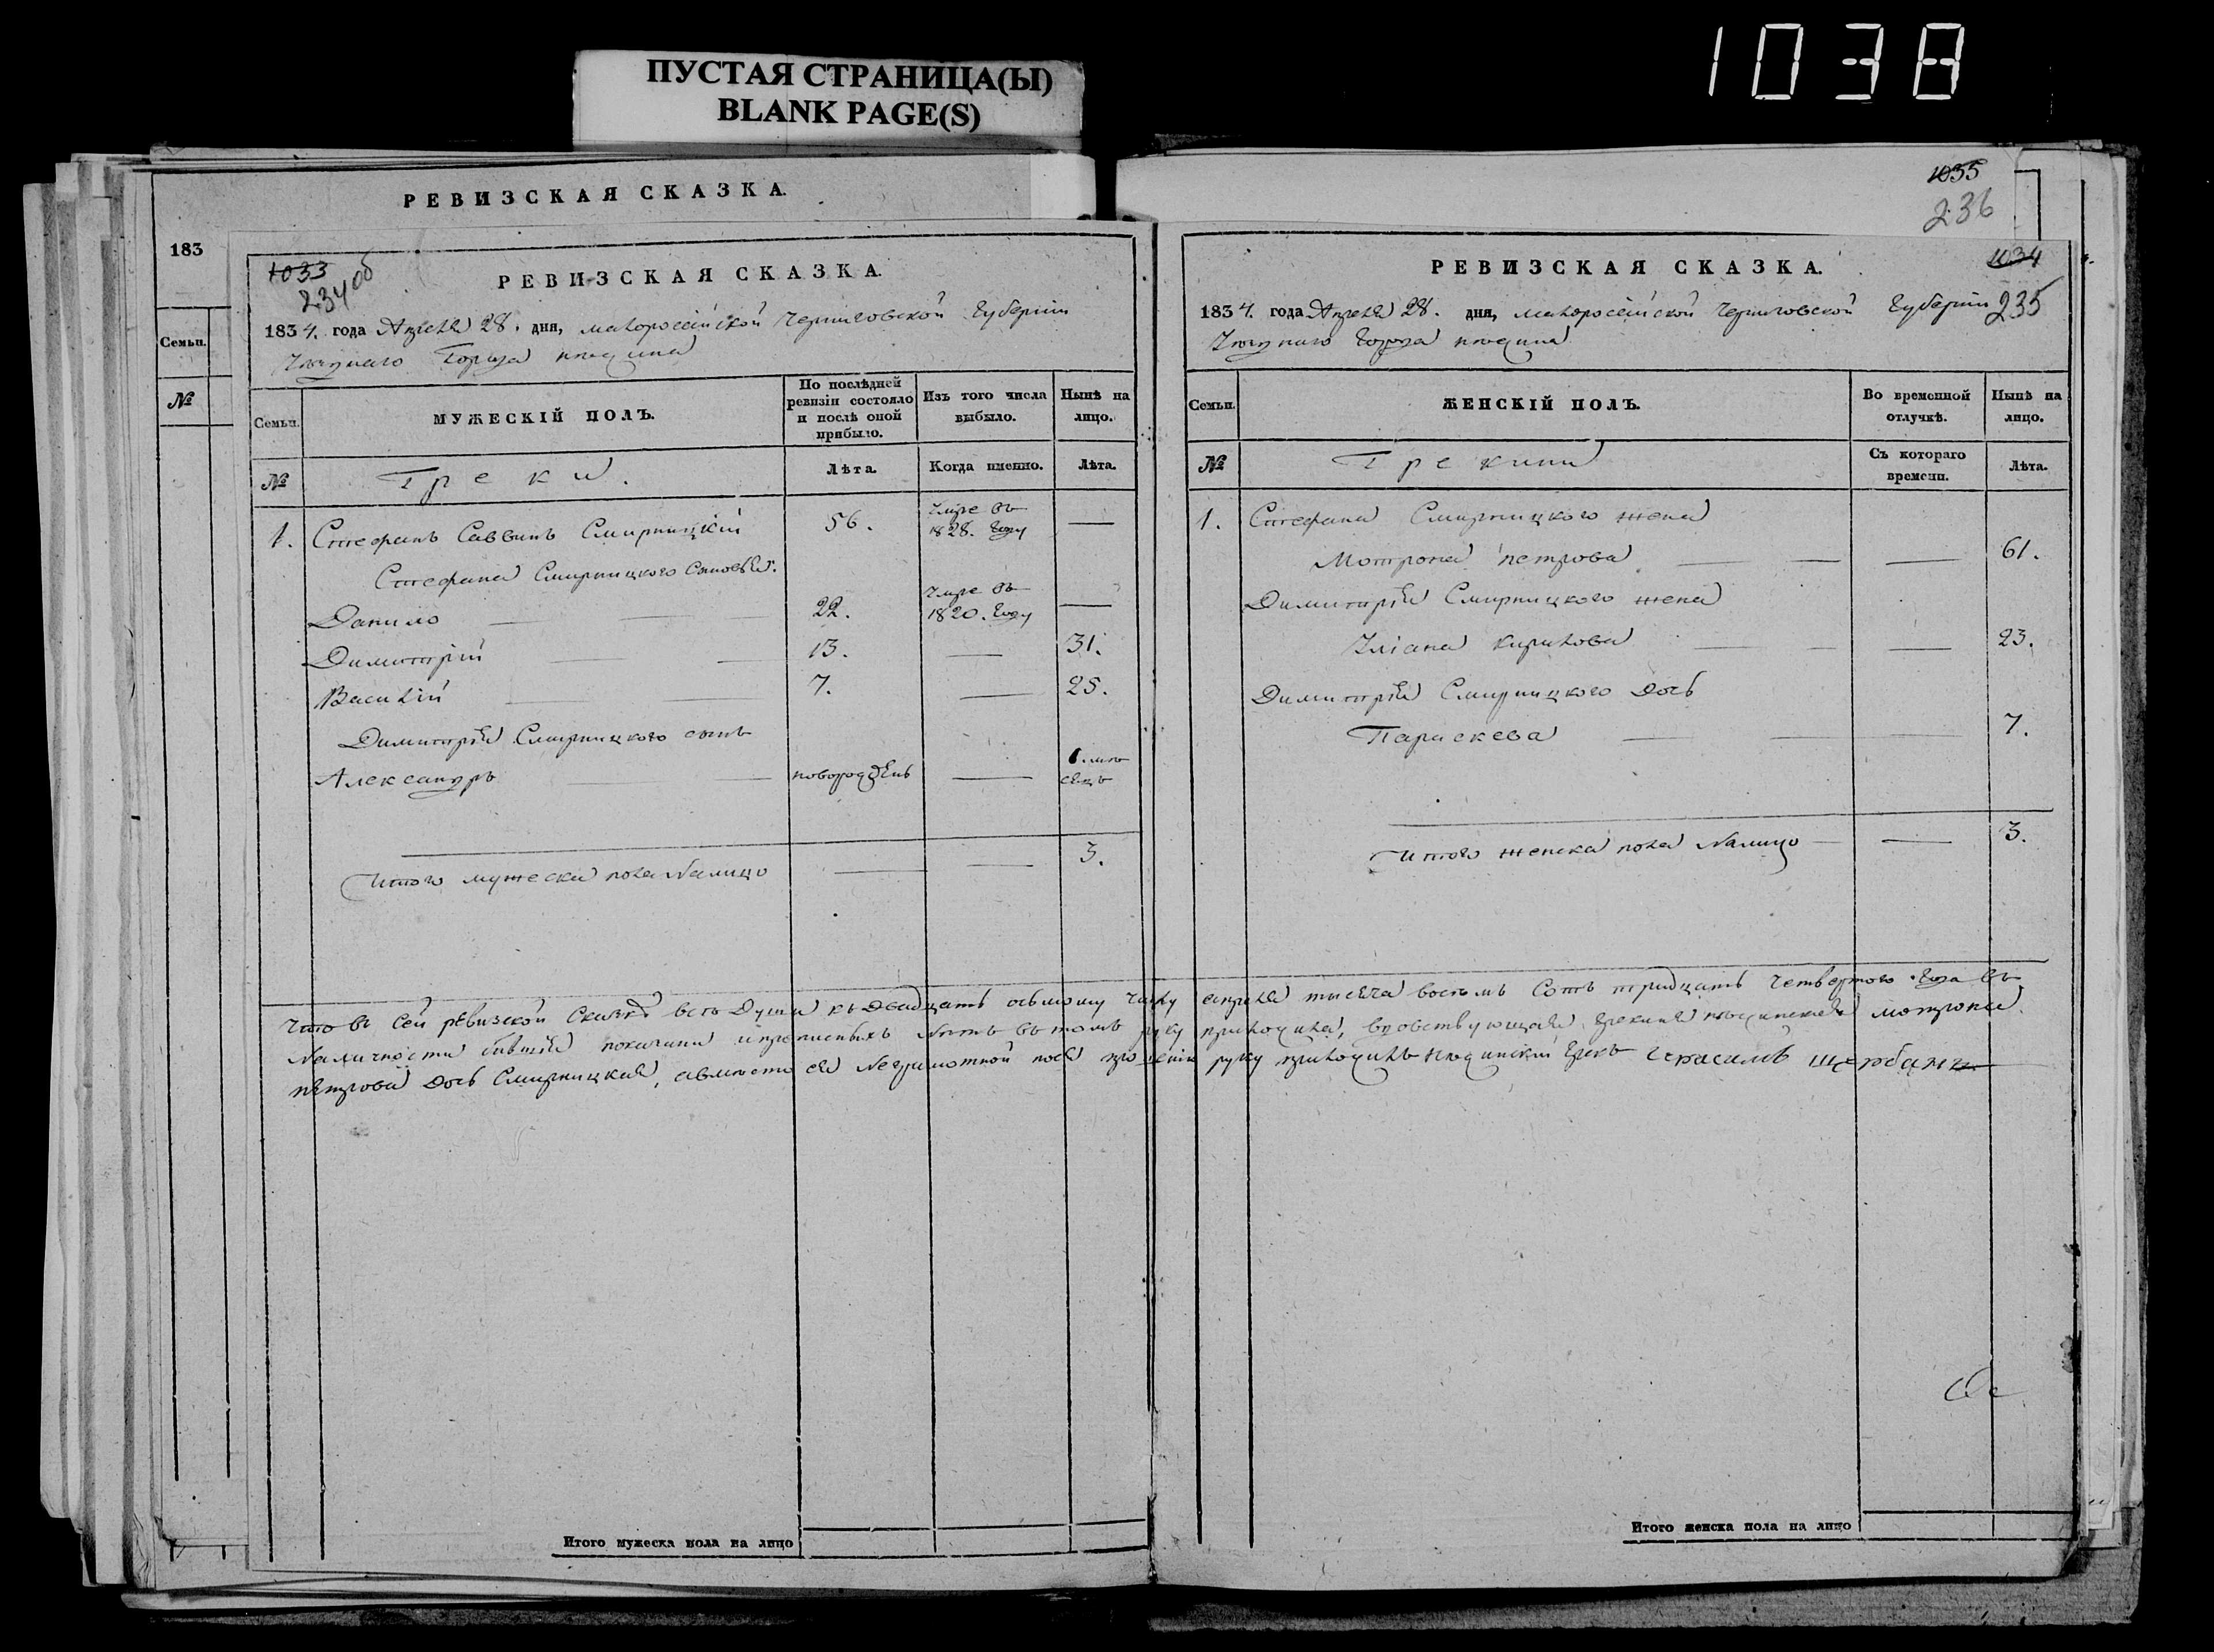 ПУСТАЯ СТРАНИЦА(Ы)
BLANK PAGE(S)
1038
РЕВИЗСКАЯ СКАЗКА.
183
Семьи.
№
1033
234об
РЕВИЗСКАЯ СКАЗКА.
1834. года Апреля 28. дня, малоросѣйской Черниговской Губернiи
Уѣзднаго Города нѣжина
Семьи.
МУЖЕСКІЙ ПОЛЪ.
По послѣдней ревизіи состояло и послѣ оной прибыло.
Изъ того числа выбыло.
Нынѣ на лицо.
№
Греки.
Лѣта.
Когда именно.
Лѣта.
1. Стефанъ Саввинъ Смирницкій 56. Умре въ 1828. Году —
Стефана Смирницкого Сыновья:
Данило 22. Умре въ 1820. Году —
Димитрій 13. — 31.
Василій 7. — 25.
Димитрія Смирницкого сынъ
Александръ новорожденъ — 6. мѣсецъ
Итого мужеска пола Налицо — — 3.
1035
236
1034
235
РЕВИЗСКАЯ СКАЗКА.
1834. года Апреля 28. дня, малоросѣйской Черниговской Губернiи
Уѣзднаго Города нѣжина
Семьи.
ЖЕНСКІЙ ПОЛЪ.
Во временной отлучкѣ.
Нынѣ на лицо.
№
Грекини
Съ котораго времени.
Лѣта.
1. Стефана Смирницкого жена
Мотрона петрова — 61.
Димитрія Смирницкого жена
Уліана Кирилова — 23.
Димитрія Смирницкого дочь
Параскева 7.
Итого женска пола Налицо — 3.
Что въ сей ревизской Сказкѣ всѣ Души къ двадцать осьмому числу апреля тысяча восемъ Сотъ тридцать Четвертого Года въ
Наличности бывшія показани ипрописныхъ Нѣтъ вътомъ руку приложила, вдовствующая грекиня нѣжинская мотрона
петрова дочь Смирницкая, авмѣсто ея Неграмотной поея прошенію руку приложилъ Нѣжинскій Грекъ Герасимъ щербани
Итого мужеска пола на лицо
Итого женска пола на лицо